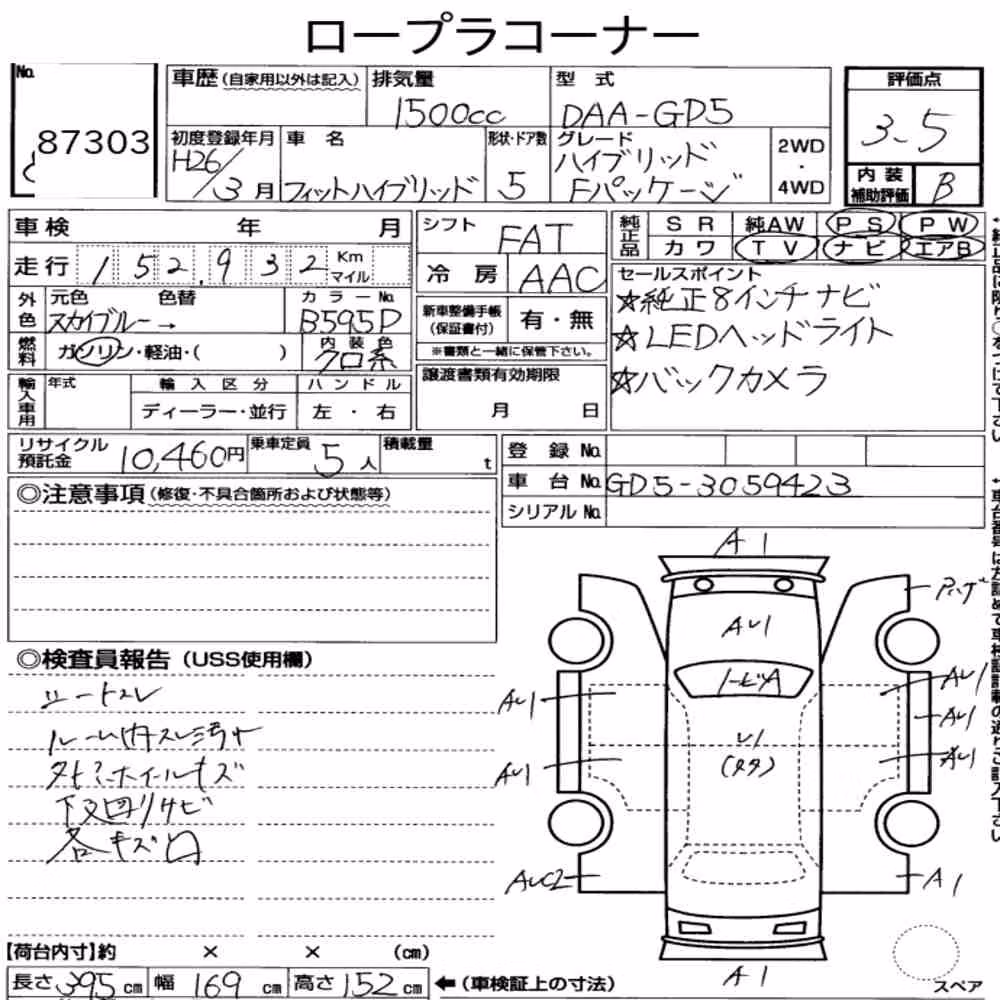 ロープラコーナー
No. 87303
車歴 (自家用以外は記入)
排気量 1500cc
型式 DAA-GD5
評価点 3.5
初度登録年月 H26/3月
車名 フィットハイブリッド
形状・ドア数 5
グレード ハイブリッド Fパッケージ
2WD・4WD
内装補助評価 B
車検 年 月
シフト FAT
純正品 SR 純AW PS PW
カワ TV ナビ エアB
走行 152,932 Km マイル
冷房 AAC
セールスポイント
☆純正8インチナビ
☆LEDヘッドライト
☆バックカメラ
外色 元色 色替 カラーNo.
スカイブルー→ B595P
新車整備手帳(保証書付) 有・無
※書類と一緒に保管下さい。
燃料 ガソリン・軽油・( )
内装色 クロ系
譲渡書類有効期限
月 日
輸入車用 年式 輸入区分 ハンドル
ディーラー・並行 左・右
リサイクル預託金 10,460円
乗車定員 5人
積載量 t
登録No.
車台No. GD5-3059423
シリアルNo.
◎注意事項 (修復・不具合箇所および状態等)
◎検査員報告 (USS使用欄)
シートスレ
ルーム内スレ汚れ
外ミホイールキズ
下又回リサビ
各キズ凹
A1
AU1
AU1
AU1
AU1
AU1
AU1
U1
AUC2
A1
A1
【荷台内寸】約 × × (cm)
長さ 395 cm 幅 169 cm 高さ 152 cm
←(車検証上の寸法)
スペア